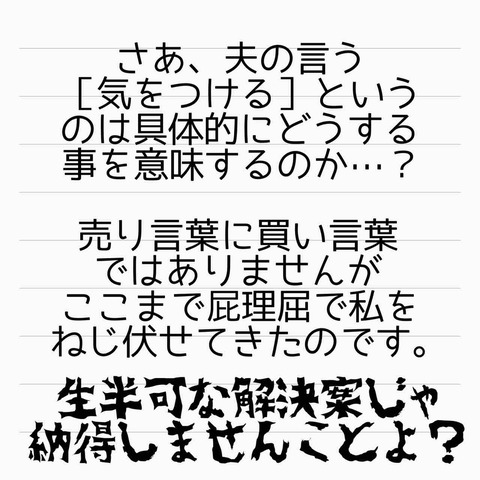 さあ、夫の言う
［気をつける］という
のは具体的にどうする
事を意味するのか…？
売り言葉に買い言葉
ではありませんが
ここまで屁理屈で私を
ねじ伏せてきたのです。
生半可な解決案じゃ
納得しませんことよ？